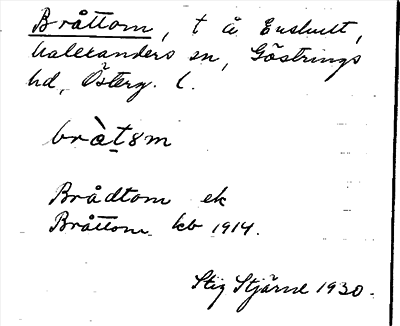 Bråttom, t å Enshult,
Kalexanders sn, Göstrings
hd, Österg. l.
bràt8m
Brådtom ek
Bråttom kb 1914.
Stig Stjärne 1930.